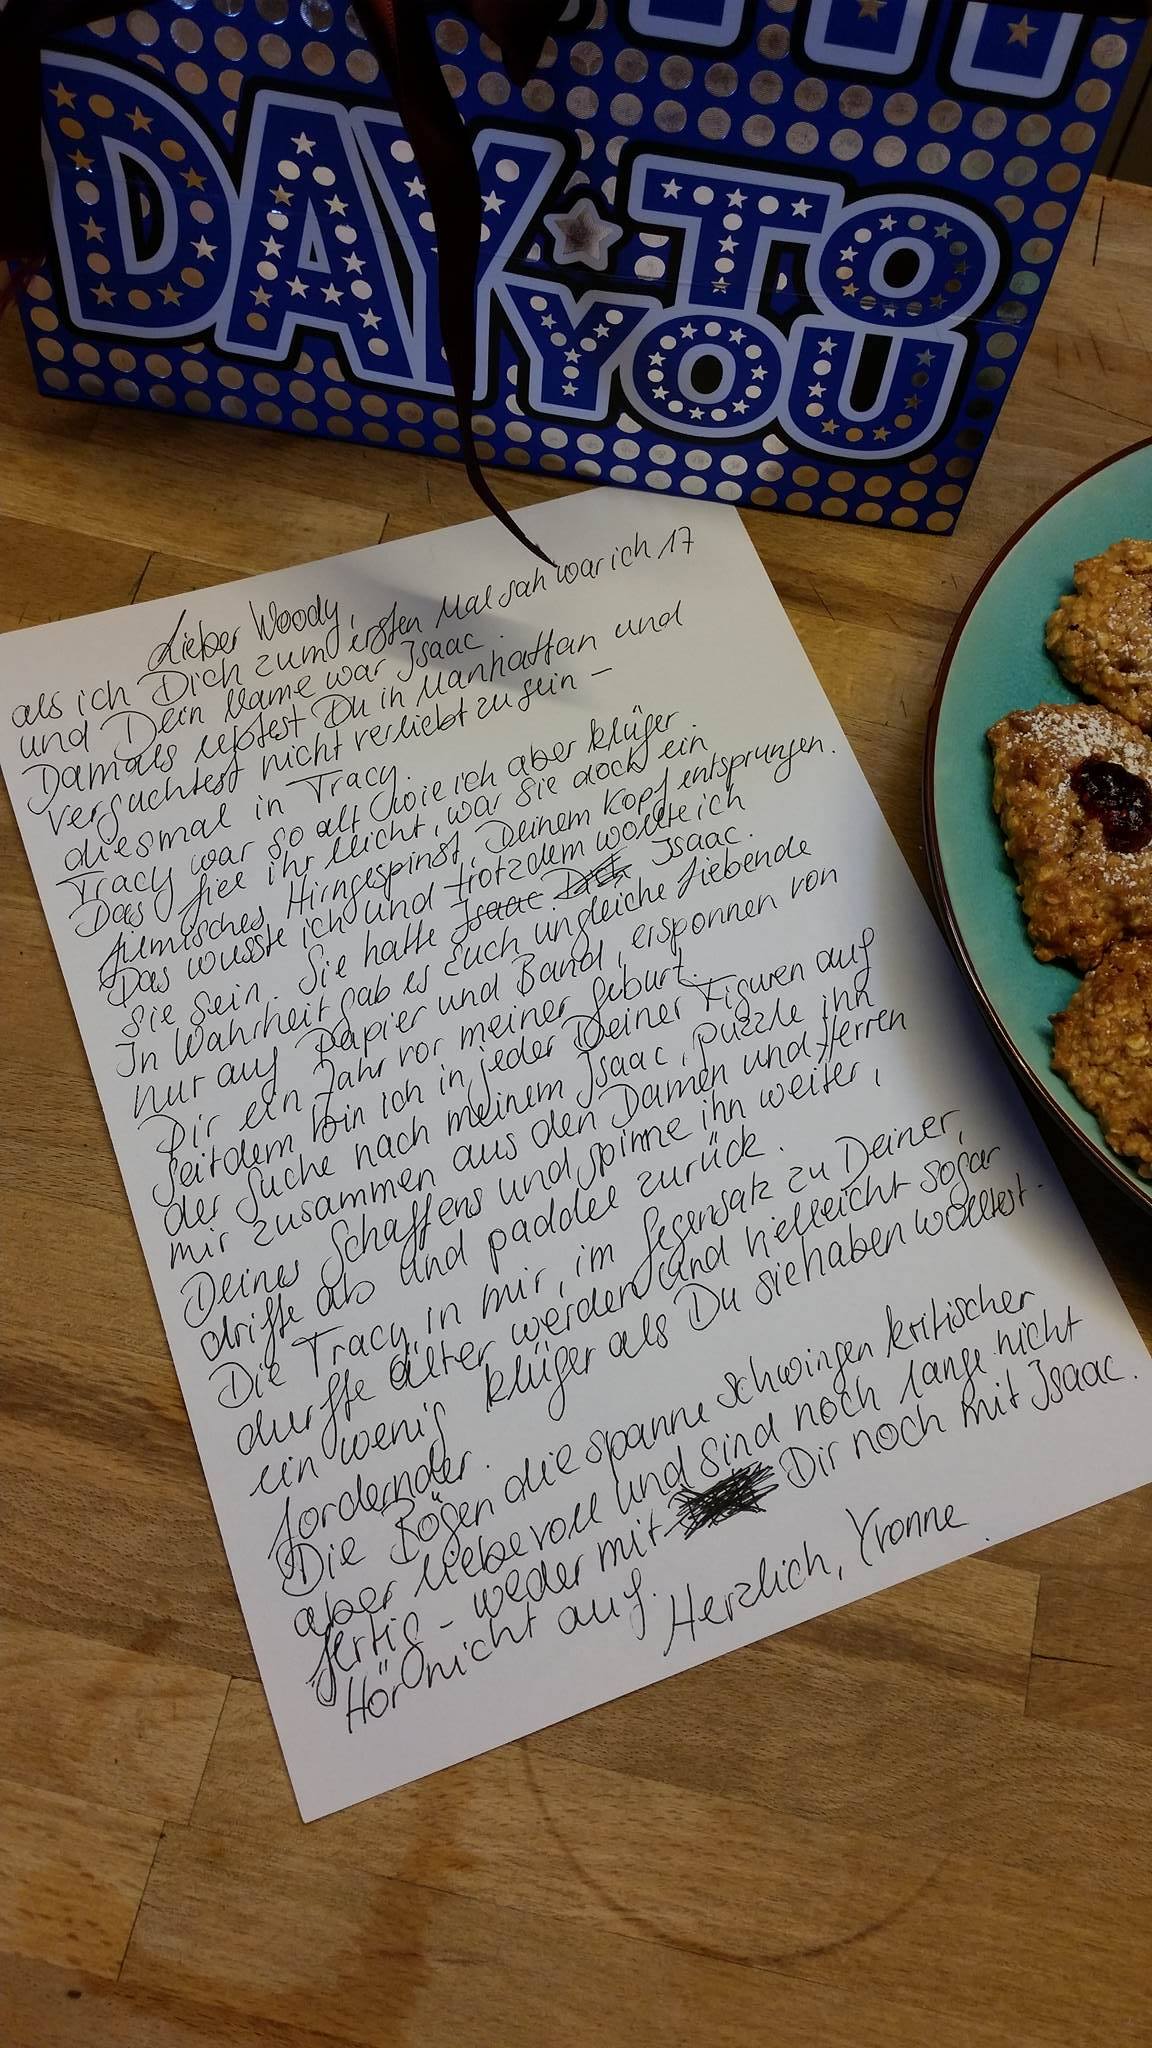 DAY TO
YOU
Lieber Woody,
als ich Dich zum ersten Mal sah war ich 17
und Dein Name war Isaac.
Damals lebtest Du in Manhattan und
versuchtest nicht verliebt zu sein –
diesmal in Tracy.
Tracy war so alt wie ich aber klüger.
Das fiel ihr leicht, war sie doch ein
filmisches Hirngespinst, Deinem Kopf entsprungen.
Das wusste ich und trotzdem wollte ich
sie sein. Sie hatte Isaac Dich Isaac.
In Wahrheit gab es Euch ungleiche Liebende
nur auf Papier und Band, ersponnen von
Dir ein Jahr vor meiner Geburt.
Seitdem bin ich in jeder Deiner Figuren auf
der Suche nach meinem Isaac, puzzle ihn
mir zusammen aus den Damen und Herren
Deines Schaffens und spinne ihn weiter,
drifte ab und paddel zurück.
Die Tracy in mir, im Gegensatz zu Deiner,
durfte älter werden und vielleicht sogar
ein wenig klüger als Du sie haben wolltest.
fordernder.
Die Bögen die spanne schwingen kritischer
aber liebevoll und sind noch lange nicht
fertig – weder mit Dir noch mit Isaac.
Hör nicht auf.
Herzlich, Yvonne.